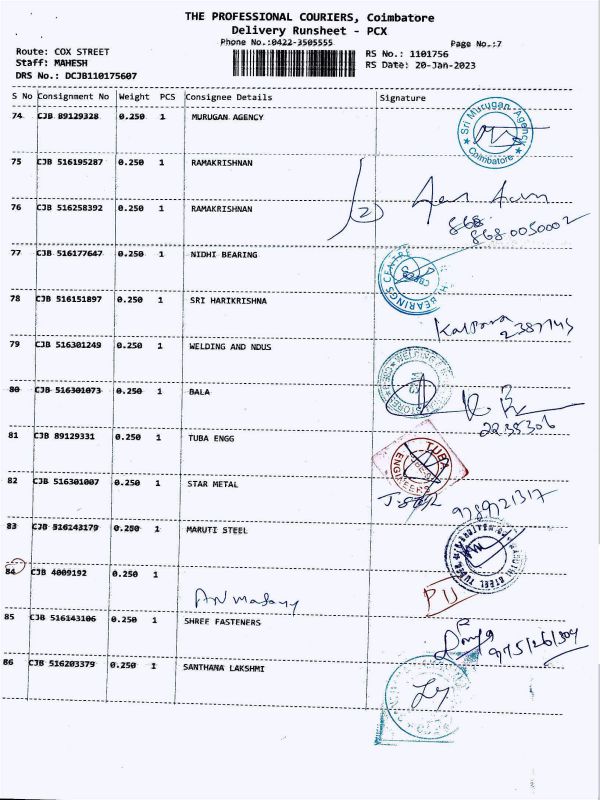 THE PROFESSIONAL COURIERS, Coimbatore
Delivery Runsheet - PCX
Phone No.:0422-3505555
Page No.:7
Route: COX STREET
RS No.: 1101756
Staff: MAHESH
RS Date: 20-Jan-2023
DRS No.: DCJB110175607
S No Consignment No Weight PCS Consignee Details Signature
74 CJB 89129328 0.250 1 MURUGAN AGENCY
Sri Murugan Agency
Coimbatore
75 CJB 516195287 0.250 1 RAMAKRISHNAN
2
76 CJB 516258392 0.250 1 RAMAKRISHNAN
868
868 0050002
77 CJB 516177647 0.250 1 NIDHI BEARING
BEARINGS CENTRE
78 CJB 516151897 0.250 1 SRI HARIKRISHNA
Kalpana
79 CJB 516301249 0.250 1 WELDING AND NDUS
80 CJB 516301073 0.250 1 BALA
2235306
81 CJB 89129331 0.250 1 TUBA ENGG
TUBA
ENGINEERS
82 CJB 516301007 0.250 1 STAR METAL
9789721317
83 CJB 516143179 0.250 1 MARUTI STEEL
STEEL TUBES
84 CJB 4009192 0.250 1
85 CJB 516143106 0.250 1 SHREE FASTENERS
86 CJB 516203379 0.250 1 SANTHANA LAKSHMI